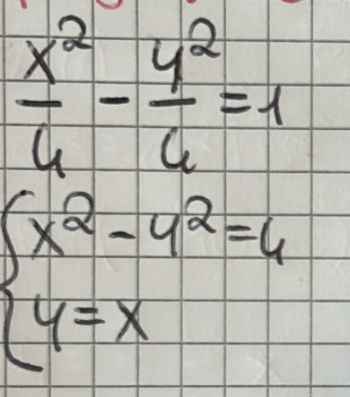 x²/4 - y²/4 = 1
{ x² - y² = 4
y = x